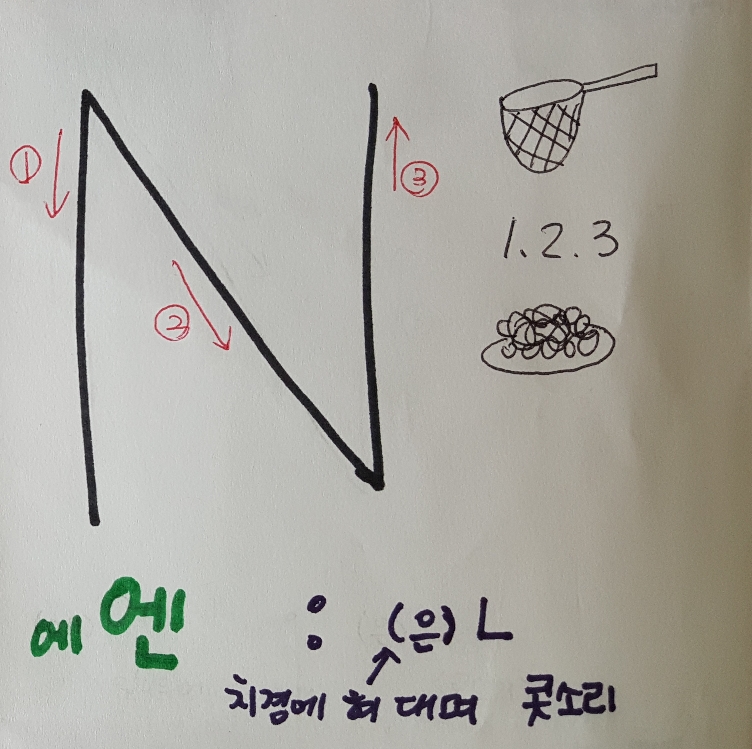 N
①
②
③
1.2.3
에 엔 : (은) ㄴ
치경에 혀 대며 콧소리